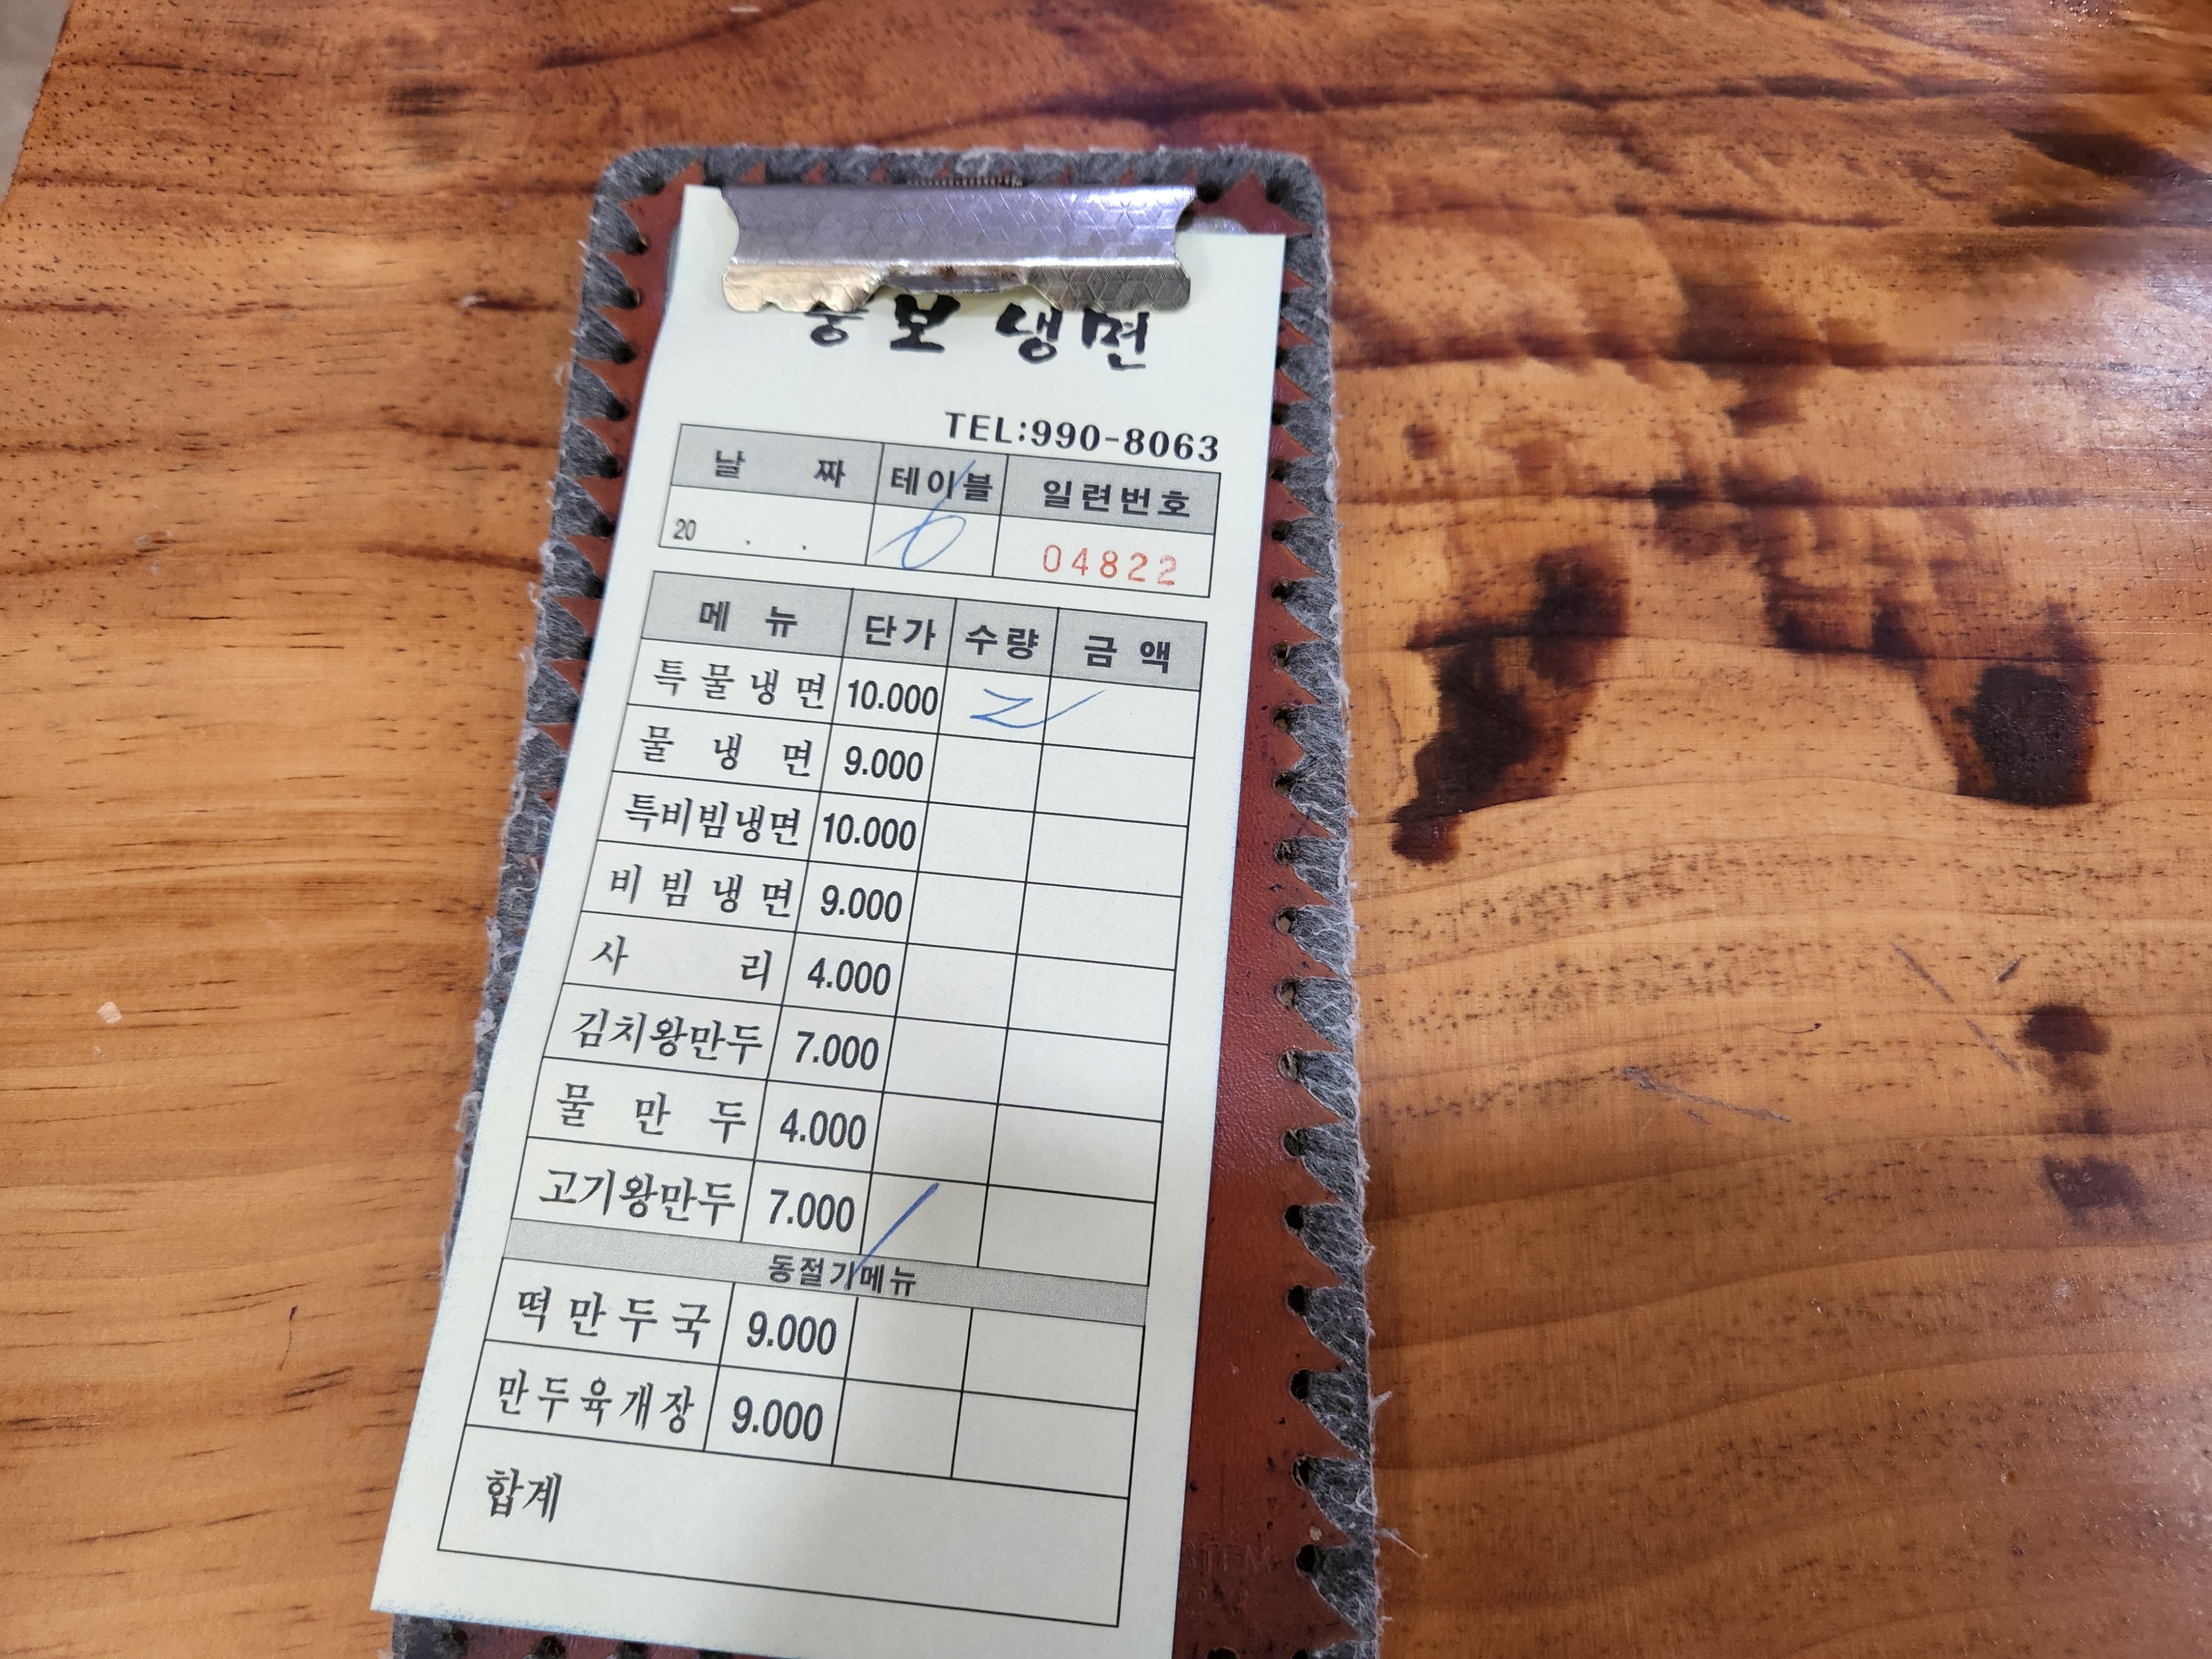 보 냉면
TEL:990-8063
날 짜 테이블 일련번호
20 . . 6 04822
메 뉴 단가 수량 금 액
특 물 냉 면 10.000 2
물 냉 면 9.000
특비빔냉면 10.000
비 빔 냉 면 9.000
사 리 4.000
김치왕만두 7.000
물 만 두 4.000
고기왕만두 7.000 /
동절기메뉴
떡 만 두 국 9.000
만두육개장 9.000
합계